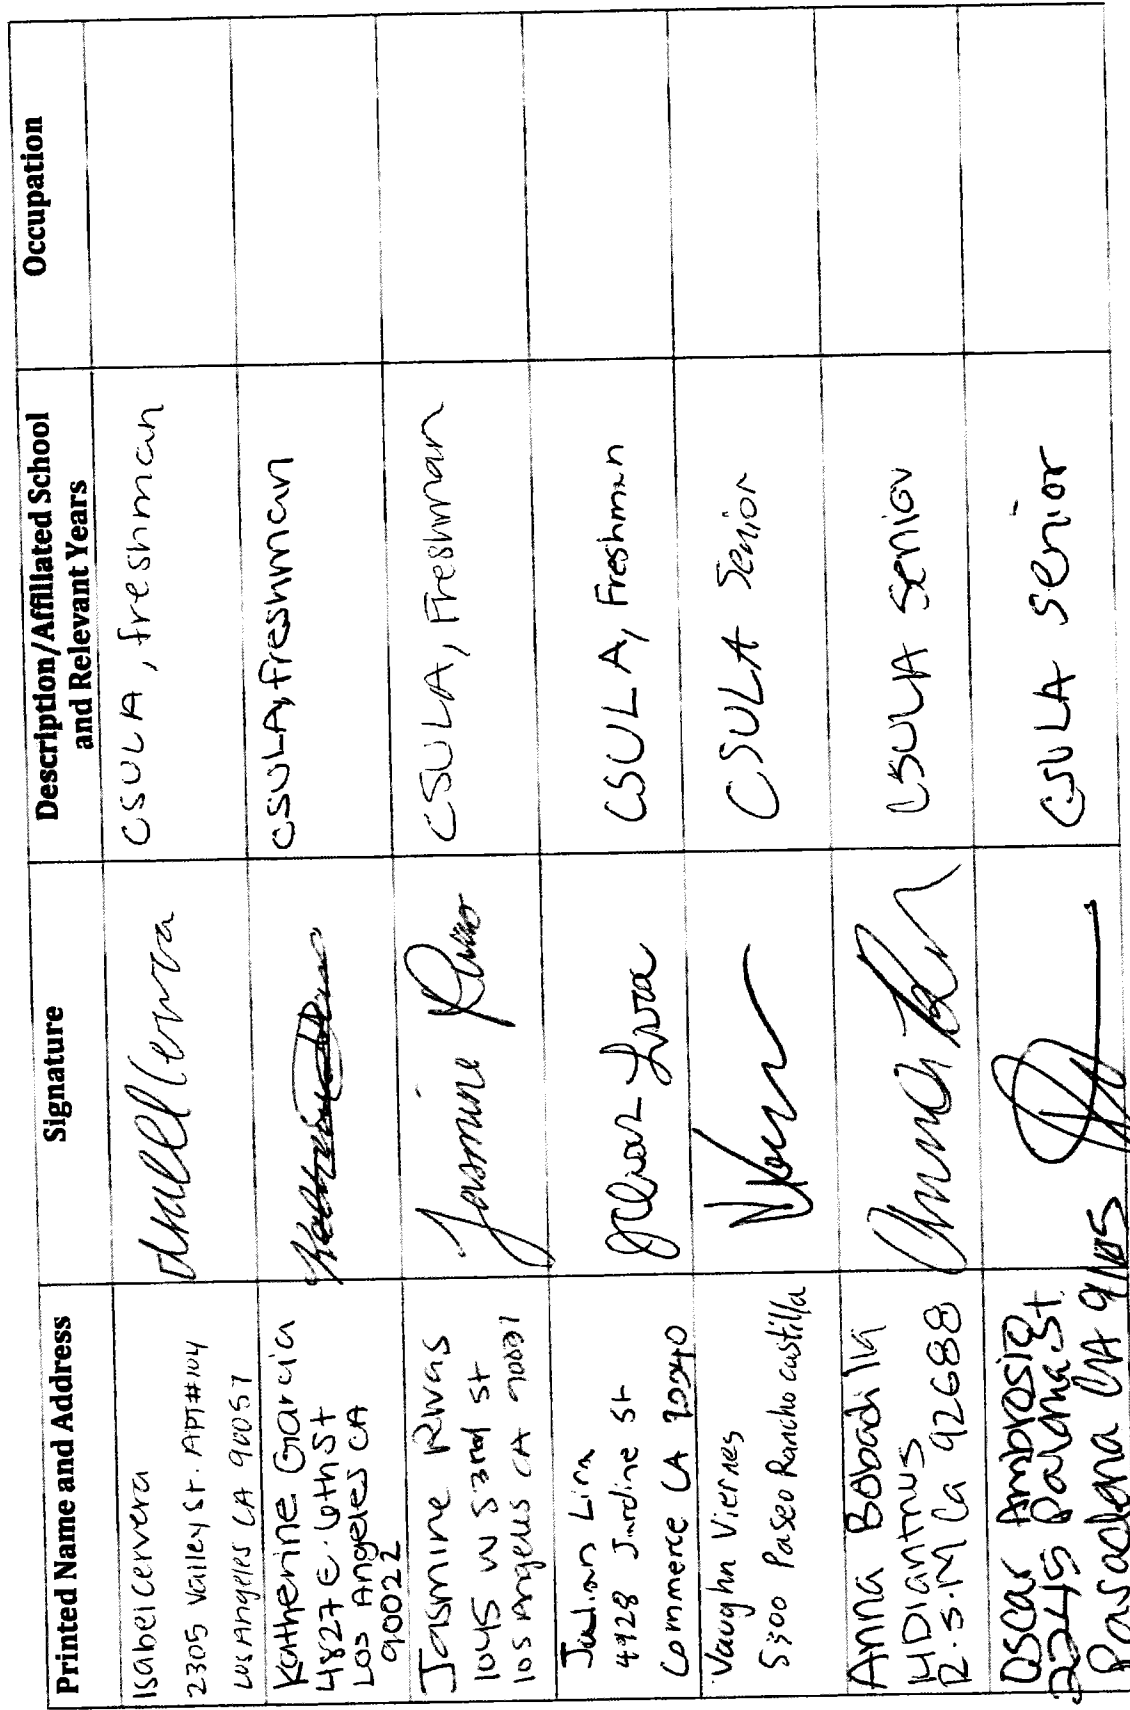 Printed Name and Address
Signature
Description/Affiliated School
and Relevant Years
Occupation
Isabel Cervera
2305 Valley St. APT#104
Los Angeles CA 90057
Isabel Cervera
CSULA, freshman
Katherine Garcia
4827 E. 6th St
Los Angeles CA
90022
CSULA, freshman
Jasmine Rivas
1045 W 53rd st
los Angeles CA 90037
Jasmine Rivas
CSULA, Freshman
Julian Lira
4928 Jardine St
Commerce CA 90040
Julian Lira
CSULA, Freshman
Vaughn Viernes
5300 Paseo Rancho castilla
CSULA Senior
Anna Bobadilla
4 Dianthus
R.S.M Ca 92688
CSULA Senior
Oscar Ambrosio
Paloma St.
Pasadena CA
CSULA Senior